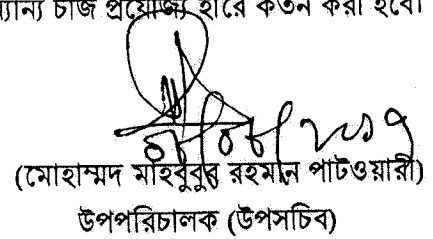 চার্জ প্রযোজ্য হারে কর্তন করা হবে।
(মোহাম্মদ মাহবুবুর রহমান পাটওয়ারী)
উপপরিচালক (উপসচিব)